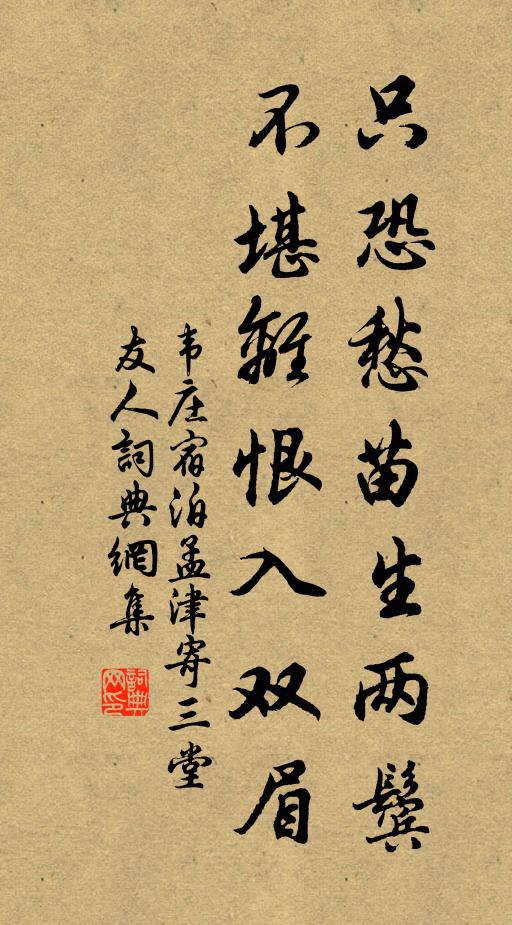 只恐愁苗生两鬓
不堪離恨入双眉
韦庄宿泊孟津寄三堂
友人詞典網集
詞典网印